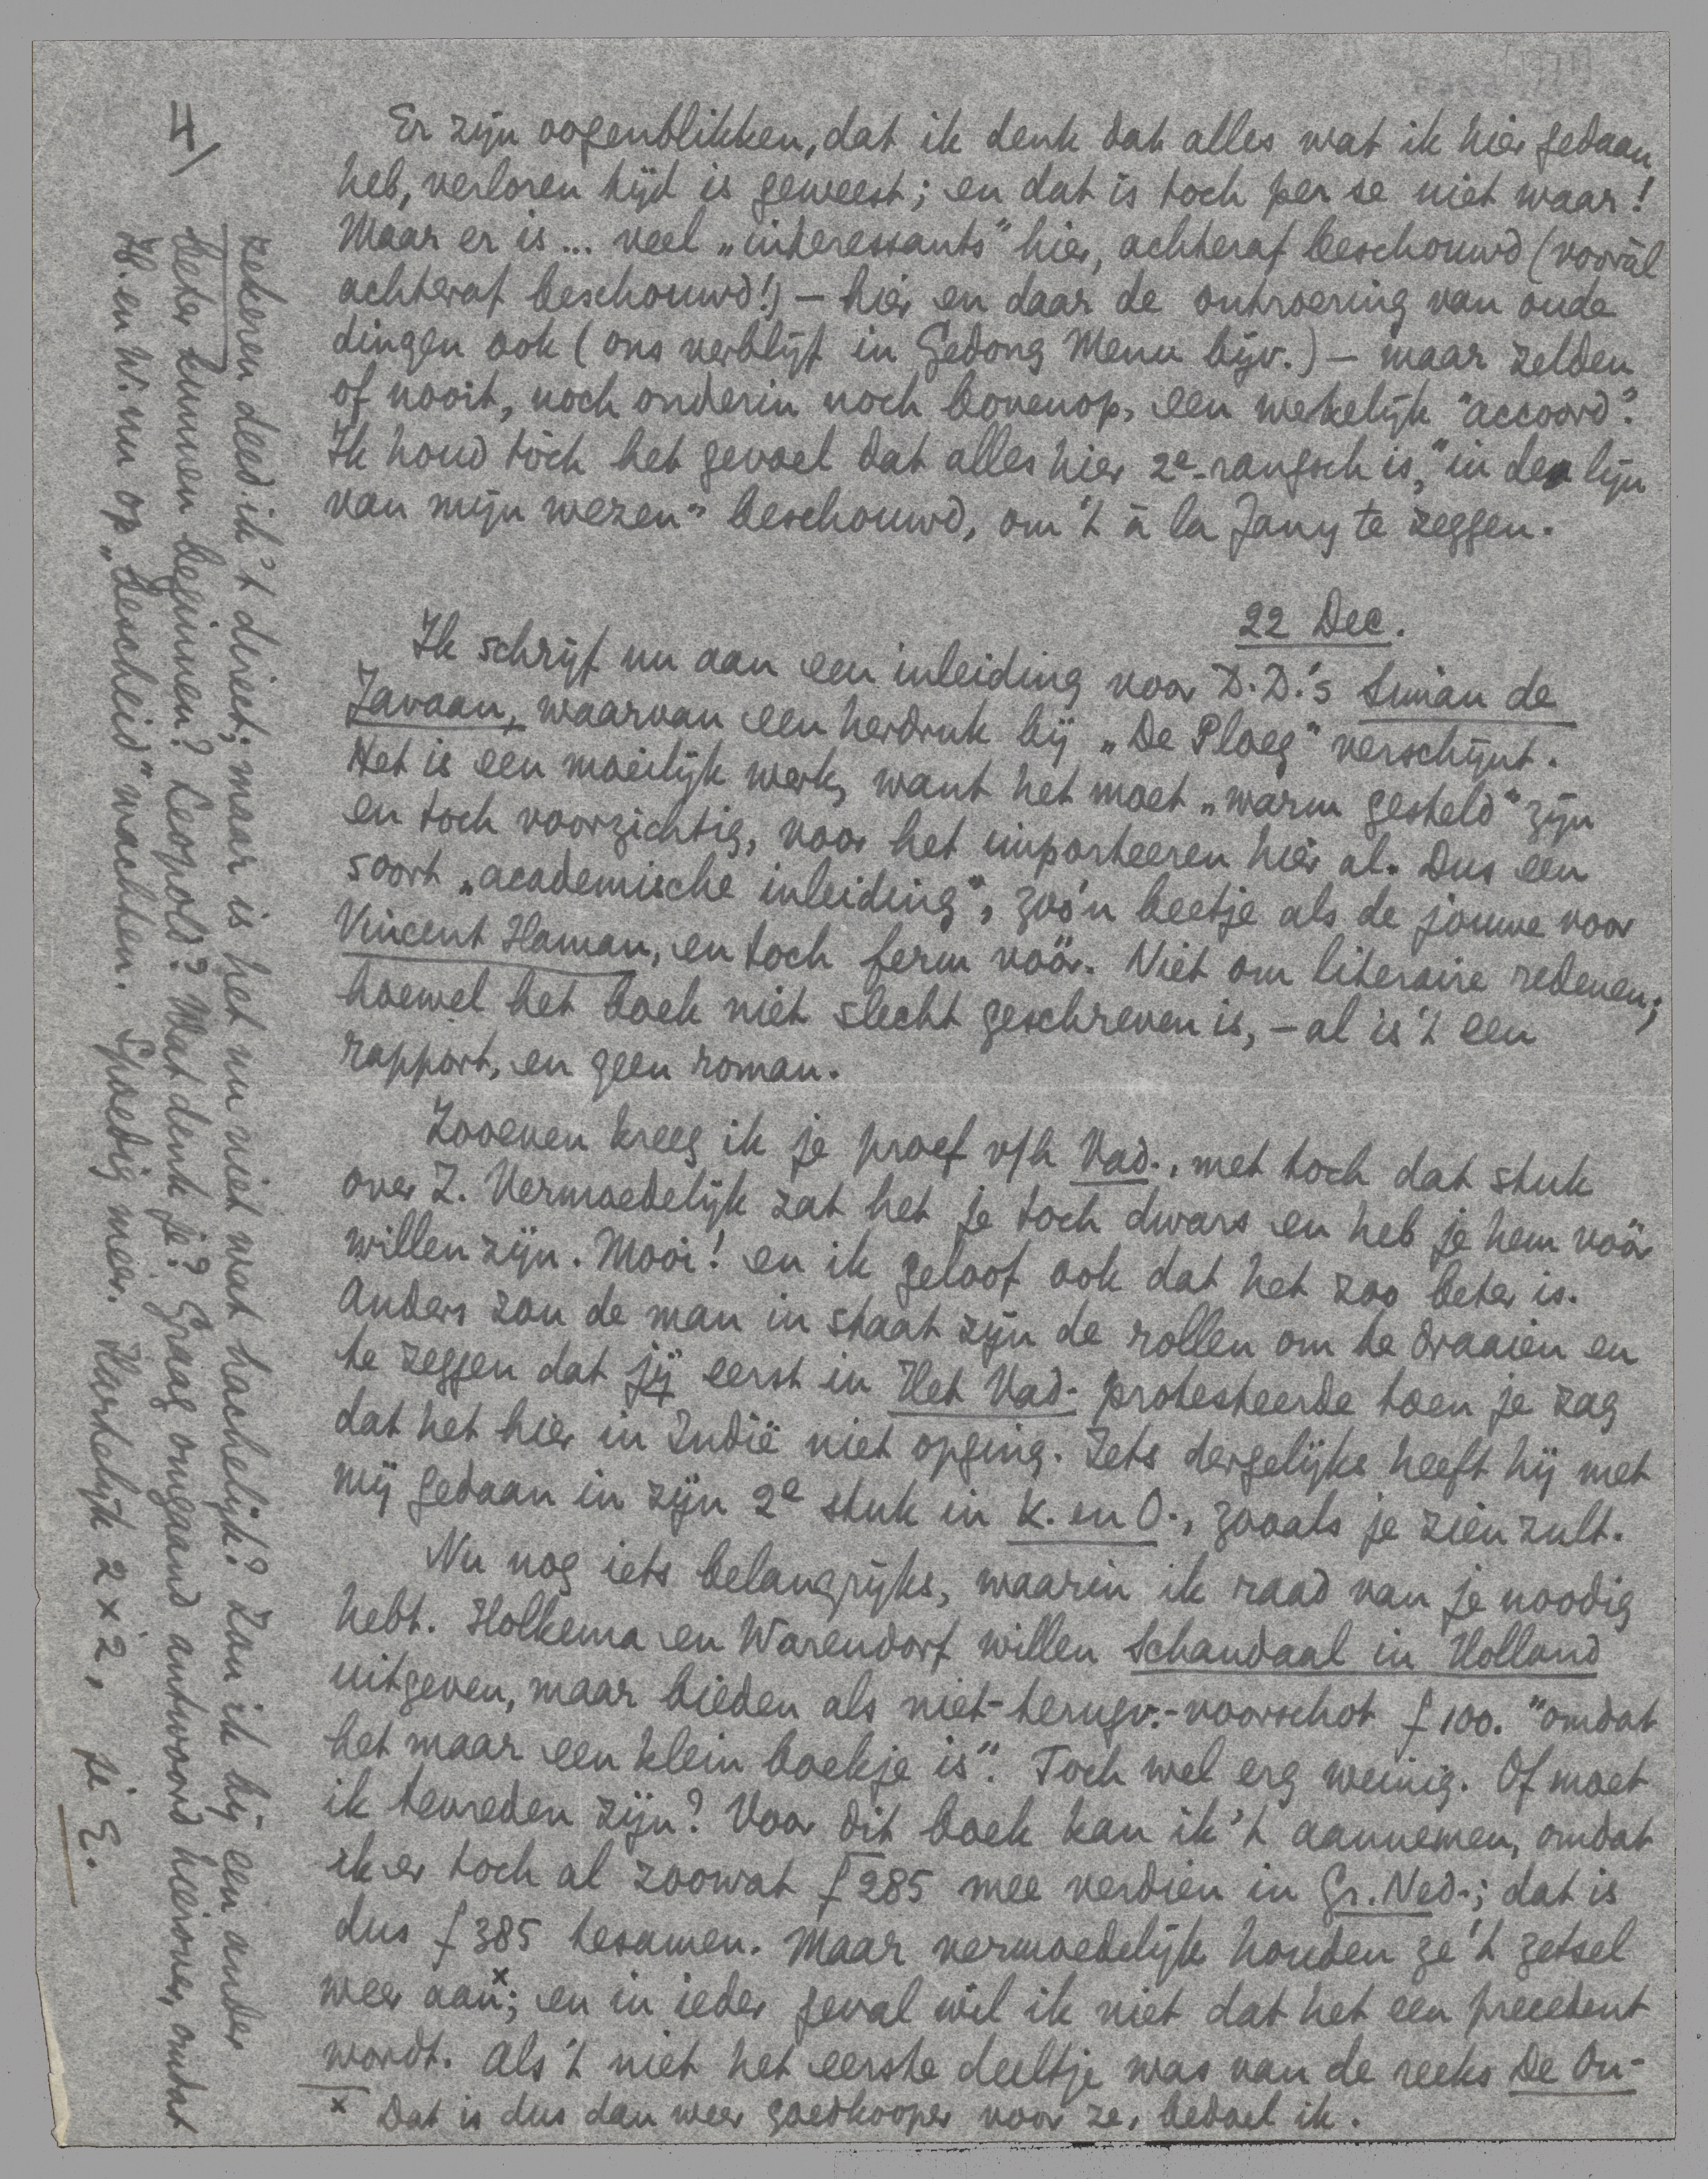 4)
Er zijn oogenblikken, dat ik denk dat alles wat ik hier gedaan
heb, verloren tijd is geweest; en dat is toch per se niet waar!
Maar er is... veel „interessants" hier, achteraf beschouwd (vooràl
achteraf beschouwd!) – hier en daar de ontroering van oude
dingen ook (ons verblijf in Gedong Menu bijv.) – maar zelden
of nooit, noch onderin noch bovenop, een werkelijk "accoord".
Ik houd tòch het gevoel dat alles hier 2e-rangsch is, "in de lijn
van mijn wezen" beschouwd, om 't à la Jany te zeggen.
22 Dec.
Ik schrijf nu aan een inleiding voor D.D.'s Siman de
Javaan, waarvan een herdruk bij „De Ploeg" verschijnt.
Het is een moeilijk werk, want het moet „warm gesteld" zijn
en toch voorzichtig, voor het importeeren hier al. Dus een
soort „academische inleiding", zoo'n beetje als de jouwe voor
Vincent Haman, en toch ferm vóór. Niet om literaire redenen;
hoewel het boek niet slecht geschreven is, – al is 't een
rapport, en geen roman.
Zooeven kreeg ik je proef v/h Vad., met toch dat stuk
over Z. Vermoedelijk zat het je toch dwars en heb je hem vóór
willen zijn. Mooi! en ik geloof ook dat het zoo beter is.
Anders zou de man in staat zijn de rollen om te draaien en
te zeggen dat jij eerst in Het Vad. protesteerde toen je zag
dat het hier in Indië niet opging. Iets dergelijks heeft hij met
mij gedaan in zijn 2e stuk in K. en O., zooals je zien zult.
Nu nog iets belangrijks, waarin ik raad van je noodig
hebt. Holkema en Warendorf willen Schandaal in Holland
uitgeven, maar bieden als niet-terugv.-voorschot ƒ 100. "omdat
het maar een klein boekje is". Toch wel erg weinig. Of moet
ik tevreden zijn? Voor dit boek kan ik 't aannemen, omdat
ik er toch al zoowat ƒ 285 mee verdien in Gr. Ned.; dat is
dus ƒ 385 tesamen. Maar vermoedelijk houden ze 't zetsel
weer aan x; en in ieder geval wil ik niet dat het een precedent
wordt. Als 't niet het eerste deeltje was van de reeks De On-
x Dat is dus dan weer goedkooper voor ze, bedoel ik.
zekeren deed ik 't direct; maar is het nu niet wat hachelijk? Zou ik bij een ander
beter kunnen beginnen? Leopold? Wat denk je? Graag omgaand antwoord hierover, omdat
H. en W. nu op „bescheid" wachten. Spoedig meer. Hartelijk 2 x 2, je E.